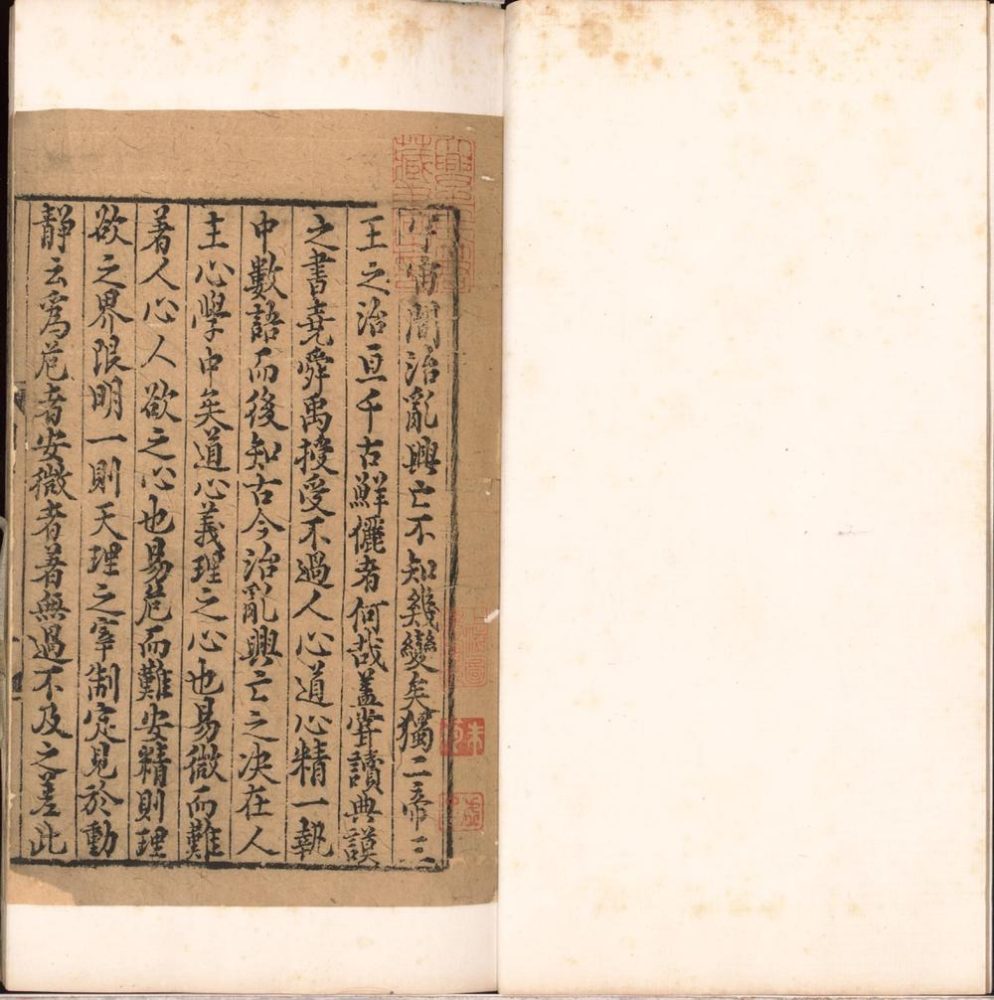 宇宙間治亂興亡不知幾變矣獨二帝三
王之治亘千古鮮儷者何哉蓋甞讀典謨
之書堯舜禹授受不過人心道心精一執
中數語而後知古今治亂興亡之决在人
主心學中矣道心義理之心也易微而難
著人心人欲之心也易危而難安精則理
欲之界限明一則天理之宰制定見於動
靜云爲危者安微者著無過不及之差此